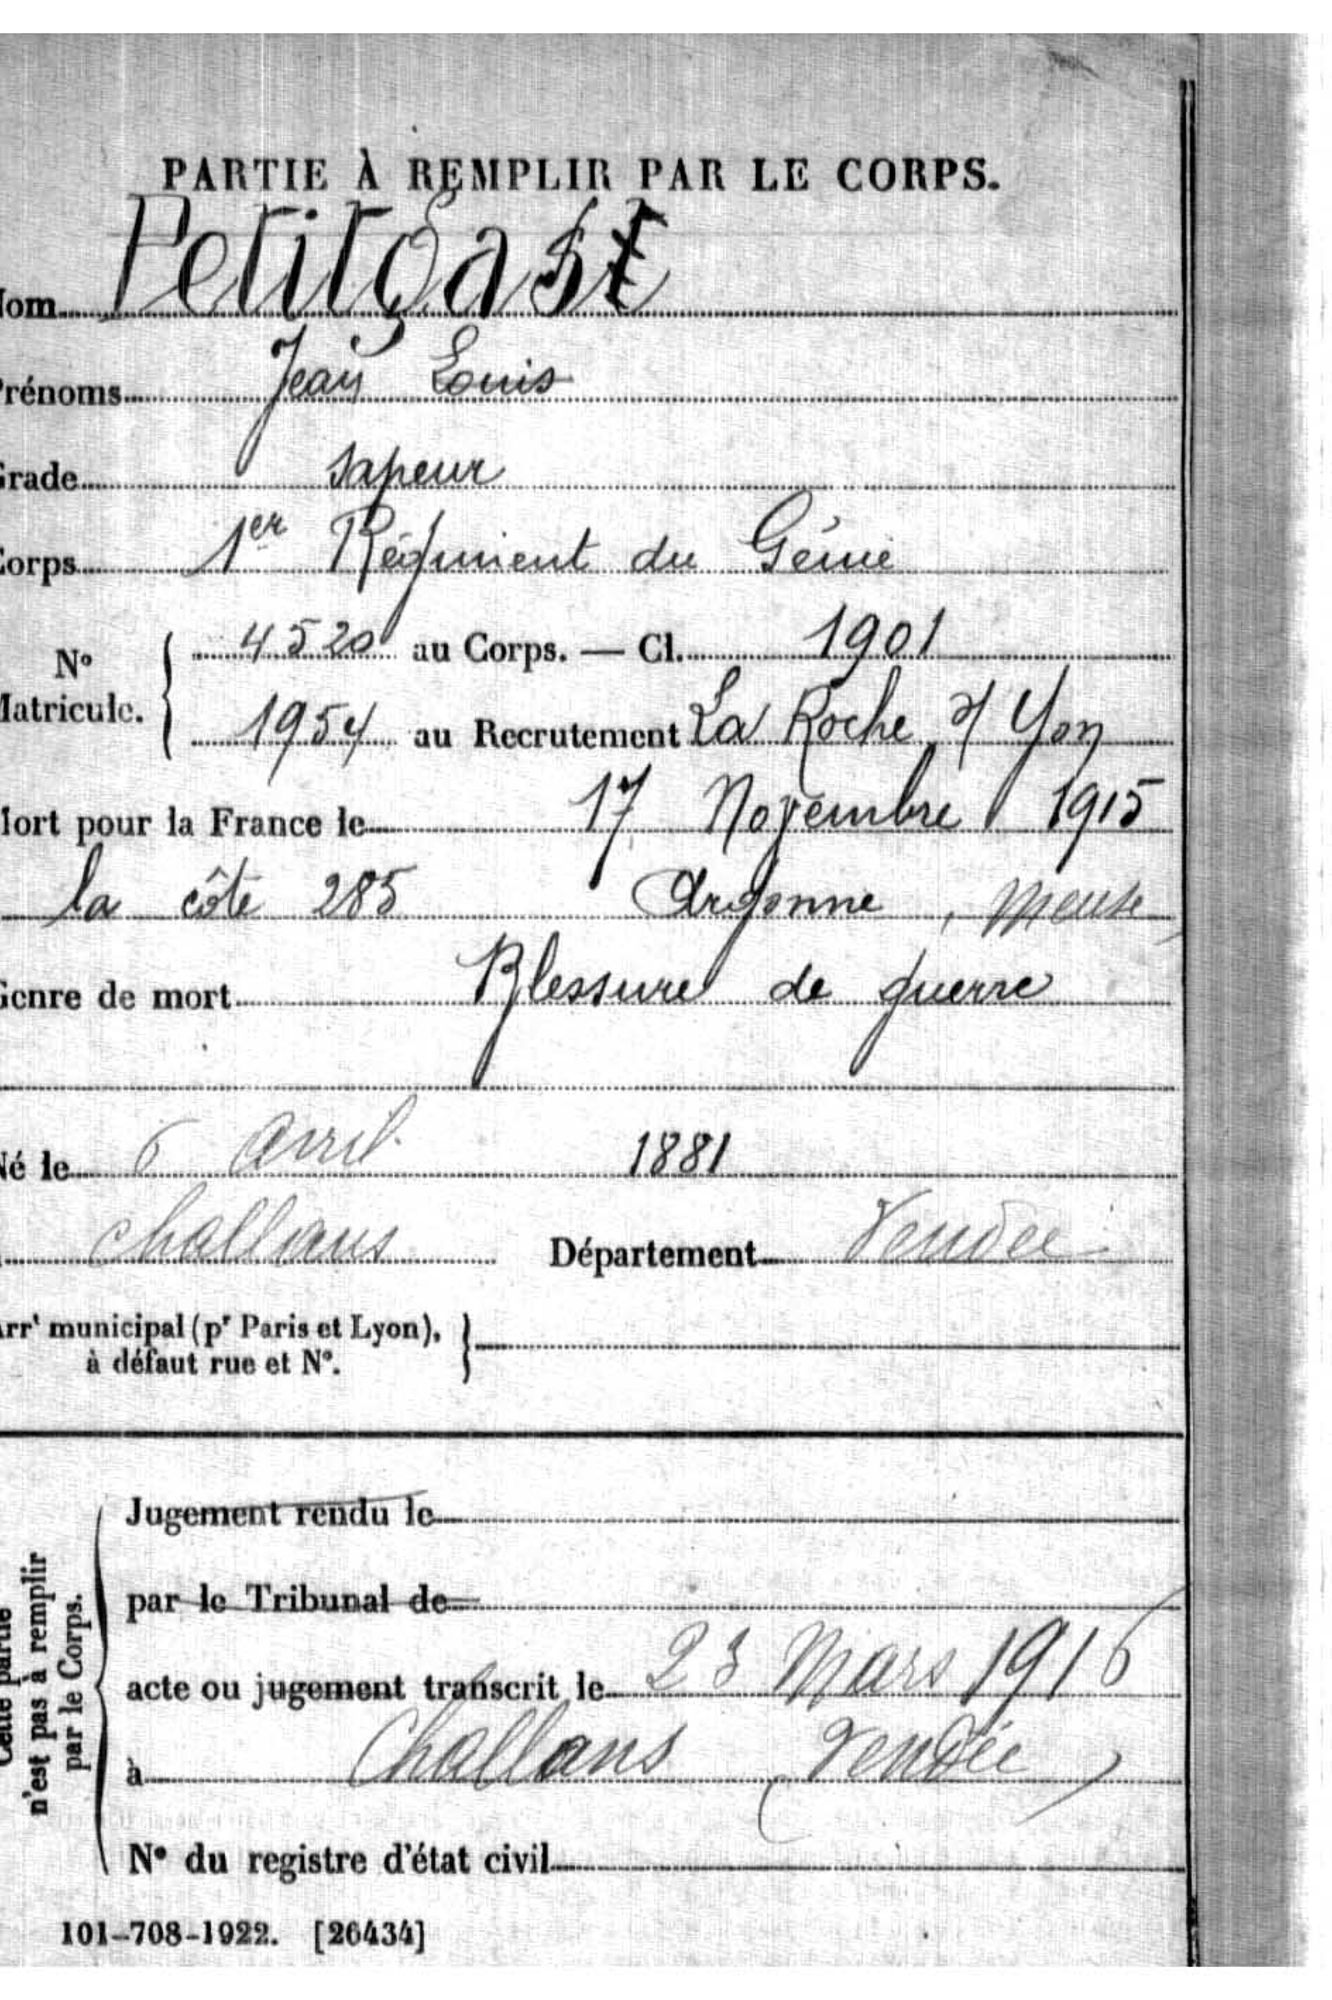 PARTIE À REMPLIR PAR LE CORPS.
Nom Petitgast
Prénoms Jean Louis
Grade sapeur
Corps 1er Régiment du Génie
N° Matricule. 4520 au Corps. — Cl. 1901
1954 au Recrutement La Roche s/ Yon
Mort pour la France le 17 Novembre 1915
la côte 285 Argonne, Meuse
Genre de mort Blessure de guerre
Né le 6 Avril 1881
Challans Département Vendée
Arrt municipal (pr Paris et Lyon),
à défaut rue et N°.
Cette partie
n'est pas à remplir
par le Corps.
Jugement rendu le
par le Tribunal de
acte ou jugement transcrit le 23 Mars 1916
à Challans (Vendée)
N° du registre d'état civil
101-708-1922. [26434]